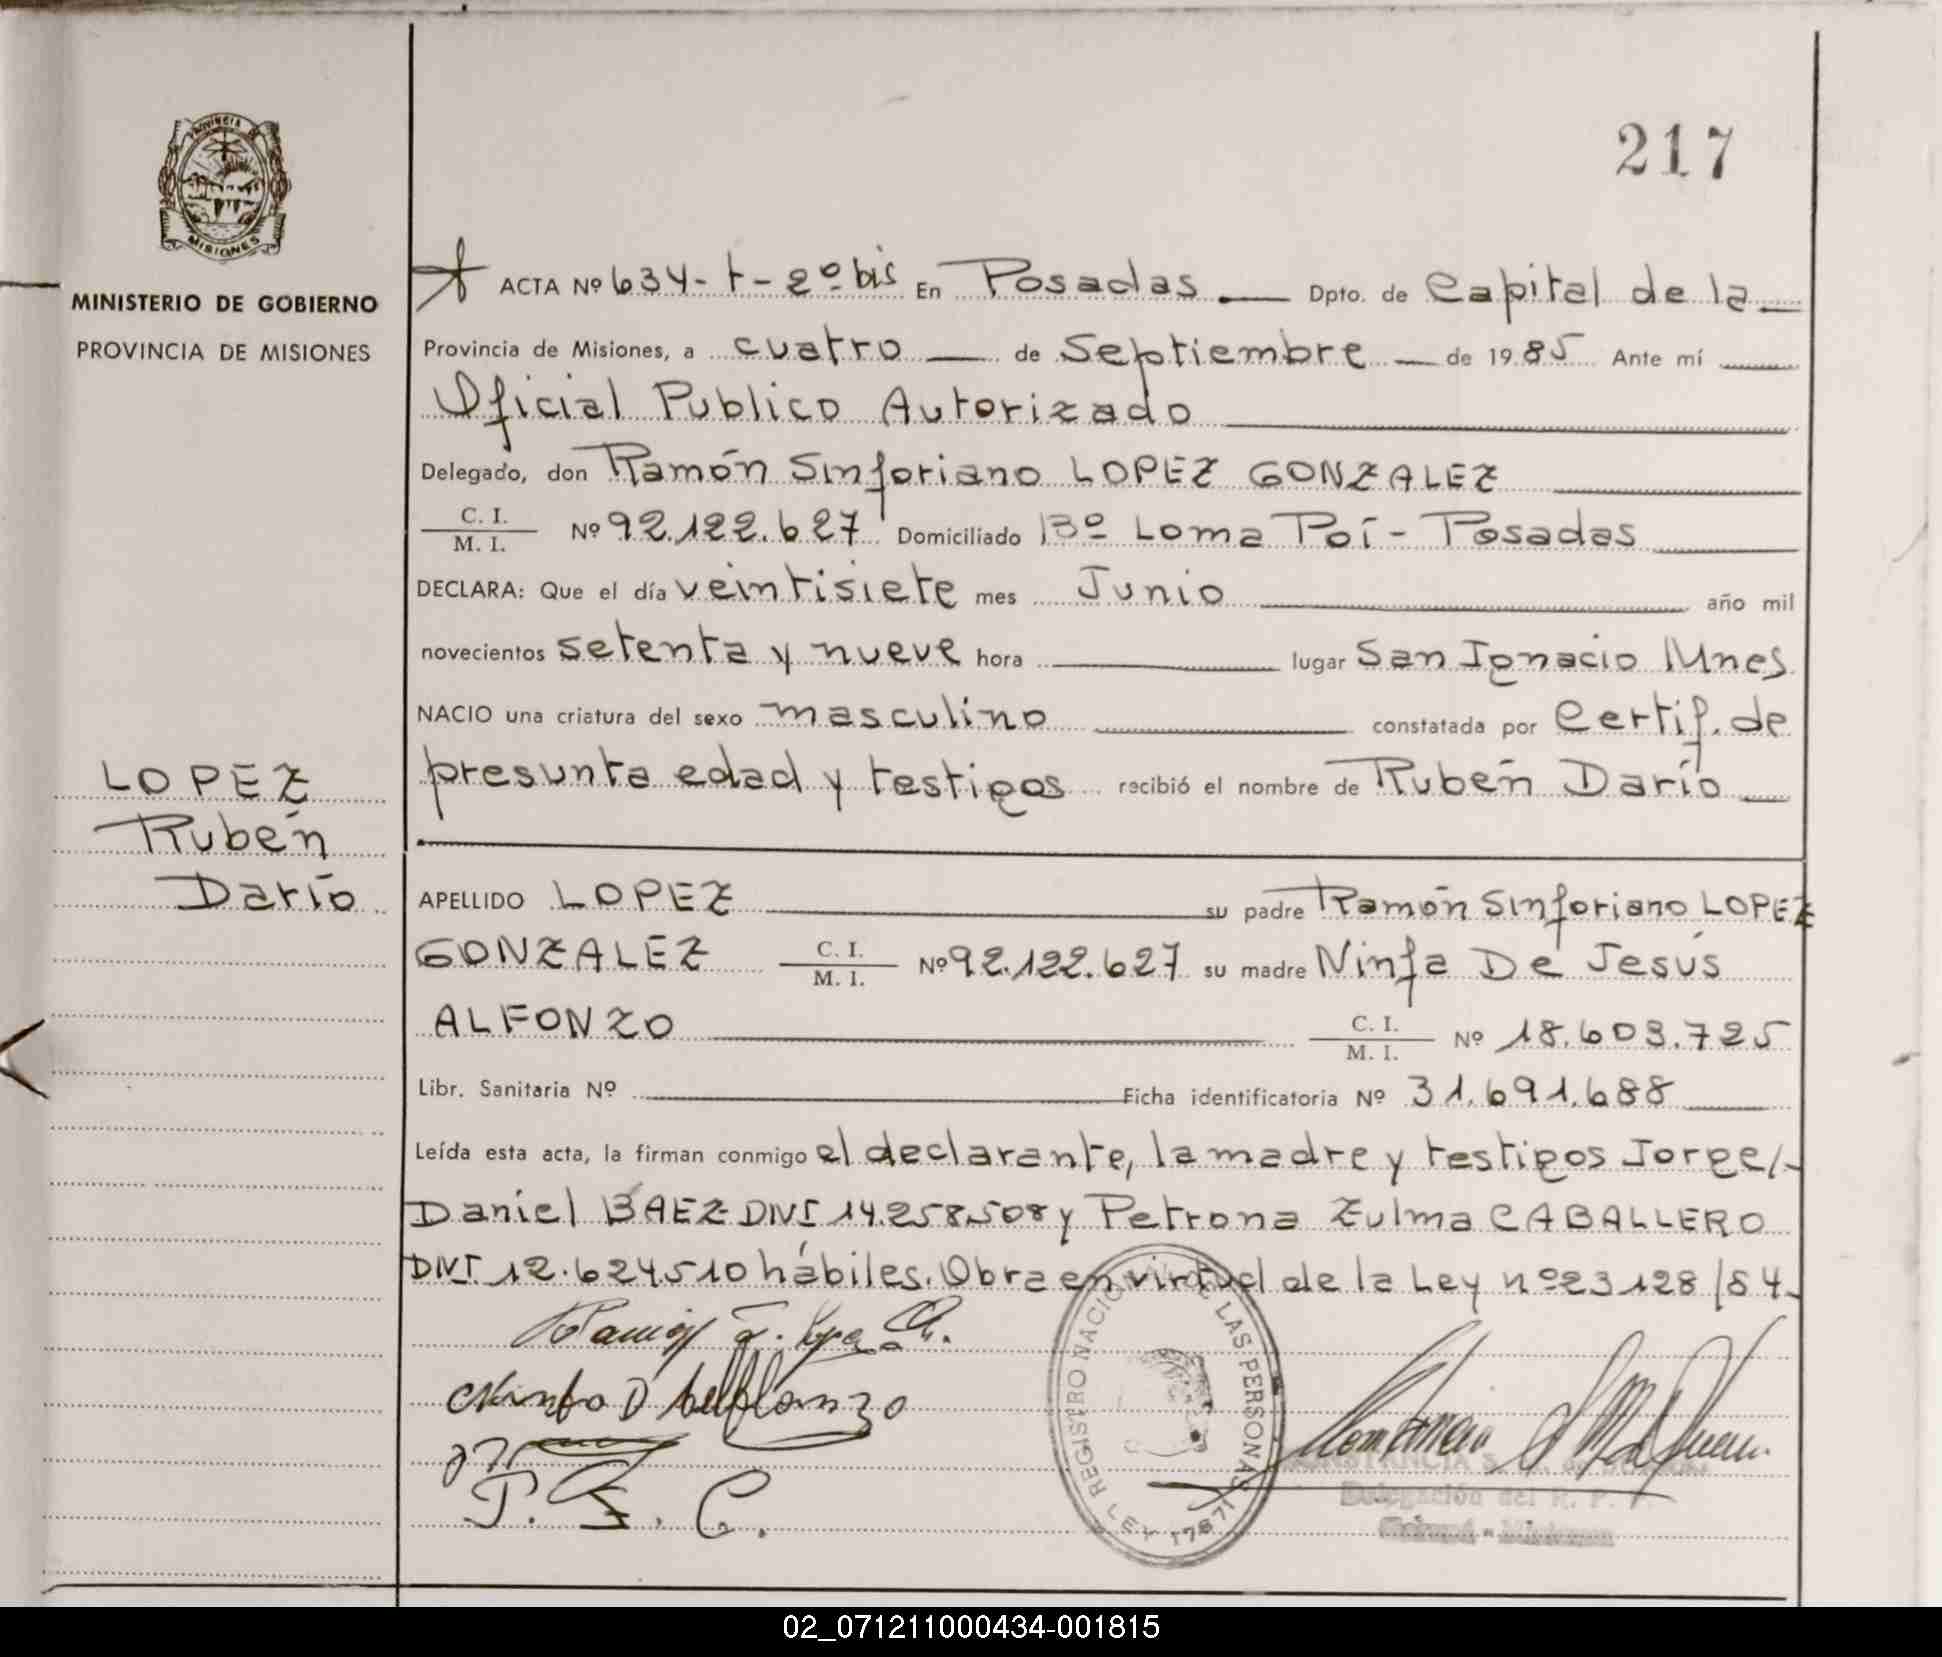 217
PROVINCIA DE
MISIONES
MINISTERIO DE GOBIERNO
PROVINCIA DE MISIONES
ACTA Nº 634-t-2º bis En Posadas Dpto. de Capital de la
Provincia de Misiones, a cuatro de Septiembre de 1985 Ante mí
Oficial Publico Autorizado
Delegado, don Ramón Sinforiano LOPEZ GONZALEZ
C. I.
M. I. Nº 92.122.627 Domiciliado Bº Loma Poí - Posadas
DECLARA: Que el día veintisiete mes Junio año mil
novecientos setenta y nueve hora lugar San Ignacio Mnes.
NACIO una criatura del sexo masculino constatada por Certif. de
presunta edad y testigos recibió el nombre de Rubén Darío
LOPEZ
Rubén
Darío
APELLIDO LOPEZ su padre Ramón Sinforiano LOPEZ
GONZALEZ C. I.
M. I. Nº 92.122.627 su madre Ninfa De Jesús
ALFONZO C. I.
M. I. Nº 18.603.725
Libr. Sanitaria Nº Ficha identificatoria Nº 31.691.688
Leída esta acta, la firman conmigo el declarante, la madre y testigos Jorge/-
Daniel BAEZ DNI 14.258.508 y Petrona Zulma CABALLERO
DNI 12.624.510 hábiles. Obra en virtud de la Ley nº 23128/84.
P. Z. C.
REGISTRO NACIONAL DE LAS PERSONAS
LEY 17671
Delegación del R. P. P.
02_071211000434-001815